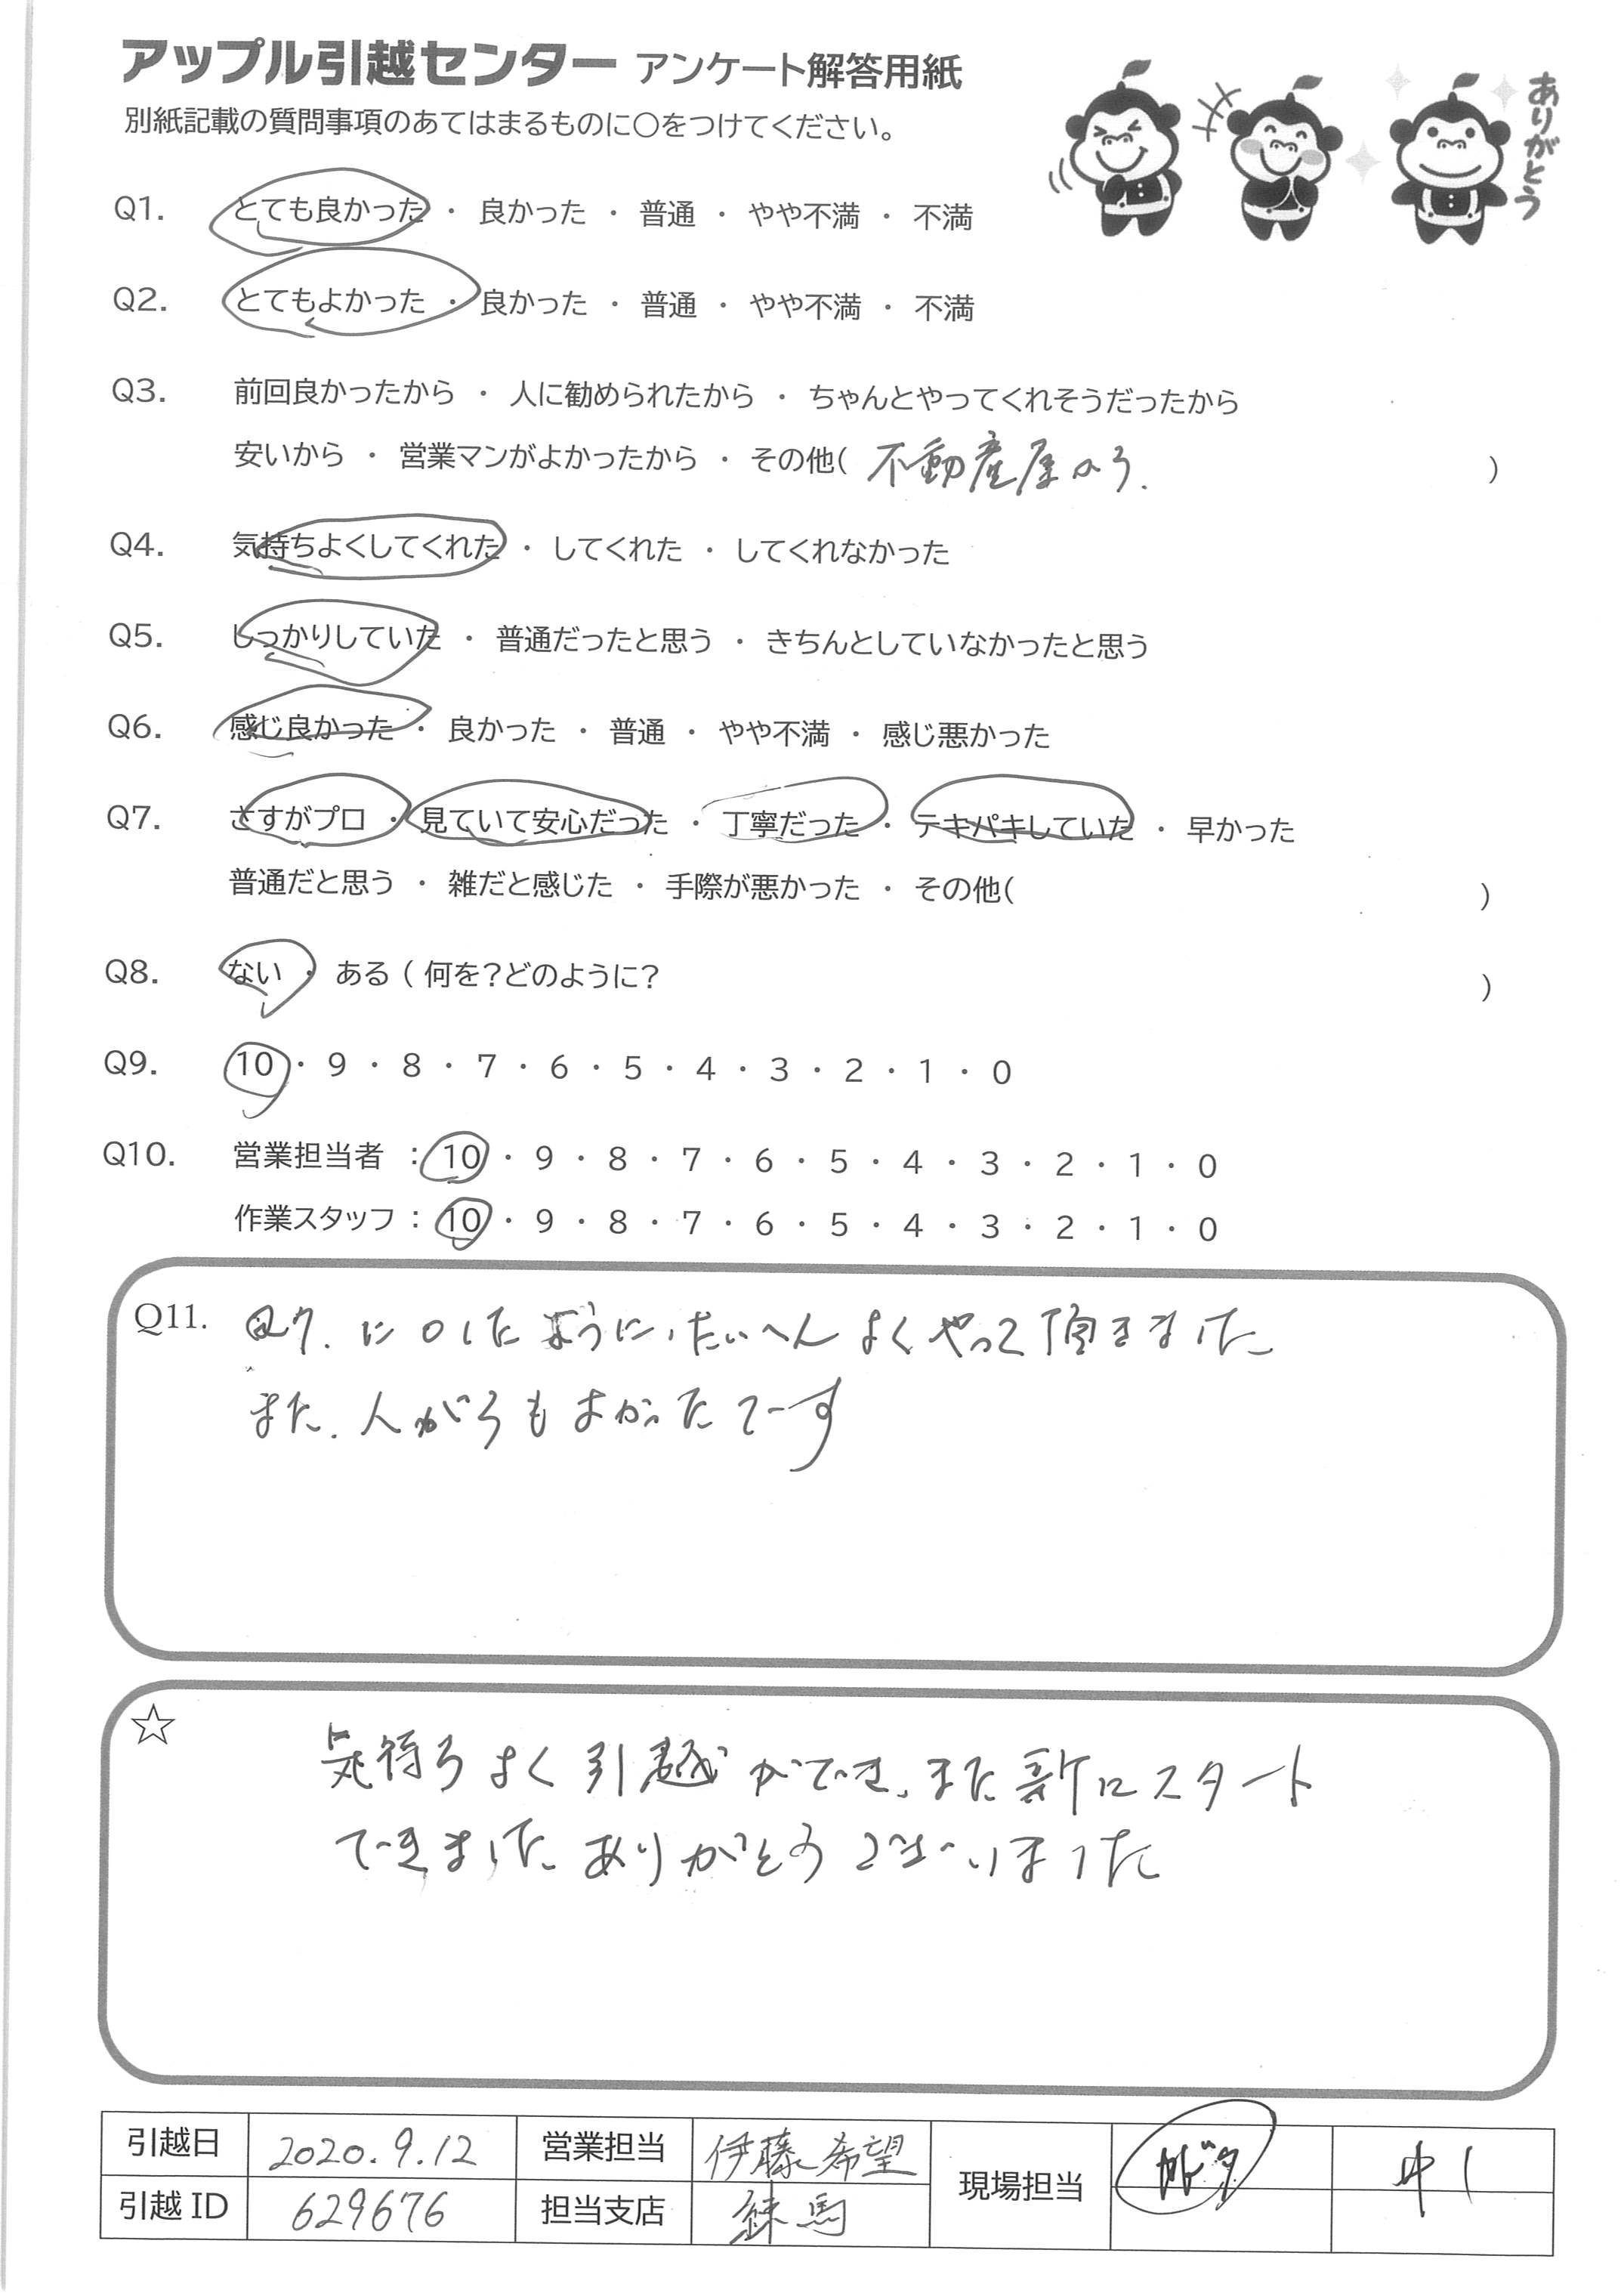 アップル引越センター アンケート解答用紙
別紙記載の質問事項のあてはまるものに○をつけてください。
ありがとう
Q1. とても良かった ・ 良かった ・ 普通 ・ やや不満 ・ 不満
Q2. とてもよかった ・ 良かった ・ 普通 ・ やや不満 ・ 不満
Q3. 前回良かったから ・ 人に勧められたから ・ ちゃんとやってくれそうだったから
安いから ・ 営業マンがよかったから ・ その他( 不動産屋から. )
Q4. 気持ちよくしてくれた ・ してくれた ・ してくれなかった
Q5. しっかりしていた ・ 普通だったと思う ・ きちんとしていなかったと思う
Q6. 感じ良かった ・ 良かった ・ 普通 ・ やや不満 ・ 感じ悪かった
Q7. さすがプロ ・ 見ていて安心だった ・ 丁寧だった ・ テキパキしていた ・ 早かった
普通だと思う ・ 雑だと感じた ・ 手際が悪かった ・ その他( )
Q8. ない ・ ある ( 何を?どのように? )
Q9. 10 ・ 9 ・ 8 ・ 7 ・ 6 ・ 5 ・ 4 ・ 3 ・ 2 ・ 1 ・ 0
Q10. 営業担当者 : 10 ・ 9 ・ 8 ・ 7 ・ 6 ・ 5 ・ 4 ・ 3 ・ 2 ・ 1 ・ 0
作業スタッフ : 10 ・ 9 ・ 8 ・ 7 ・ 6 ・ 5 ・ 4 ・ 3 ・ 2 ・ 1 ・ 0
Q11. Q7. に○したように、たいへんよくやって頂きました
また、人がらもよかったでーす
☆ 気持ちよく引越ができ、また新にスタート
できました ありがとうございました
引越日 2020.9.12 営業担当 伊藤希望 現場担当
引越ID 629676 担当支店 練馬